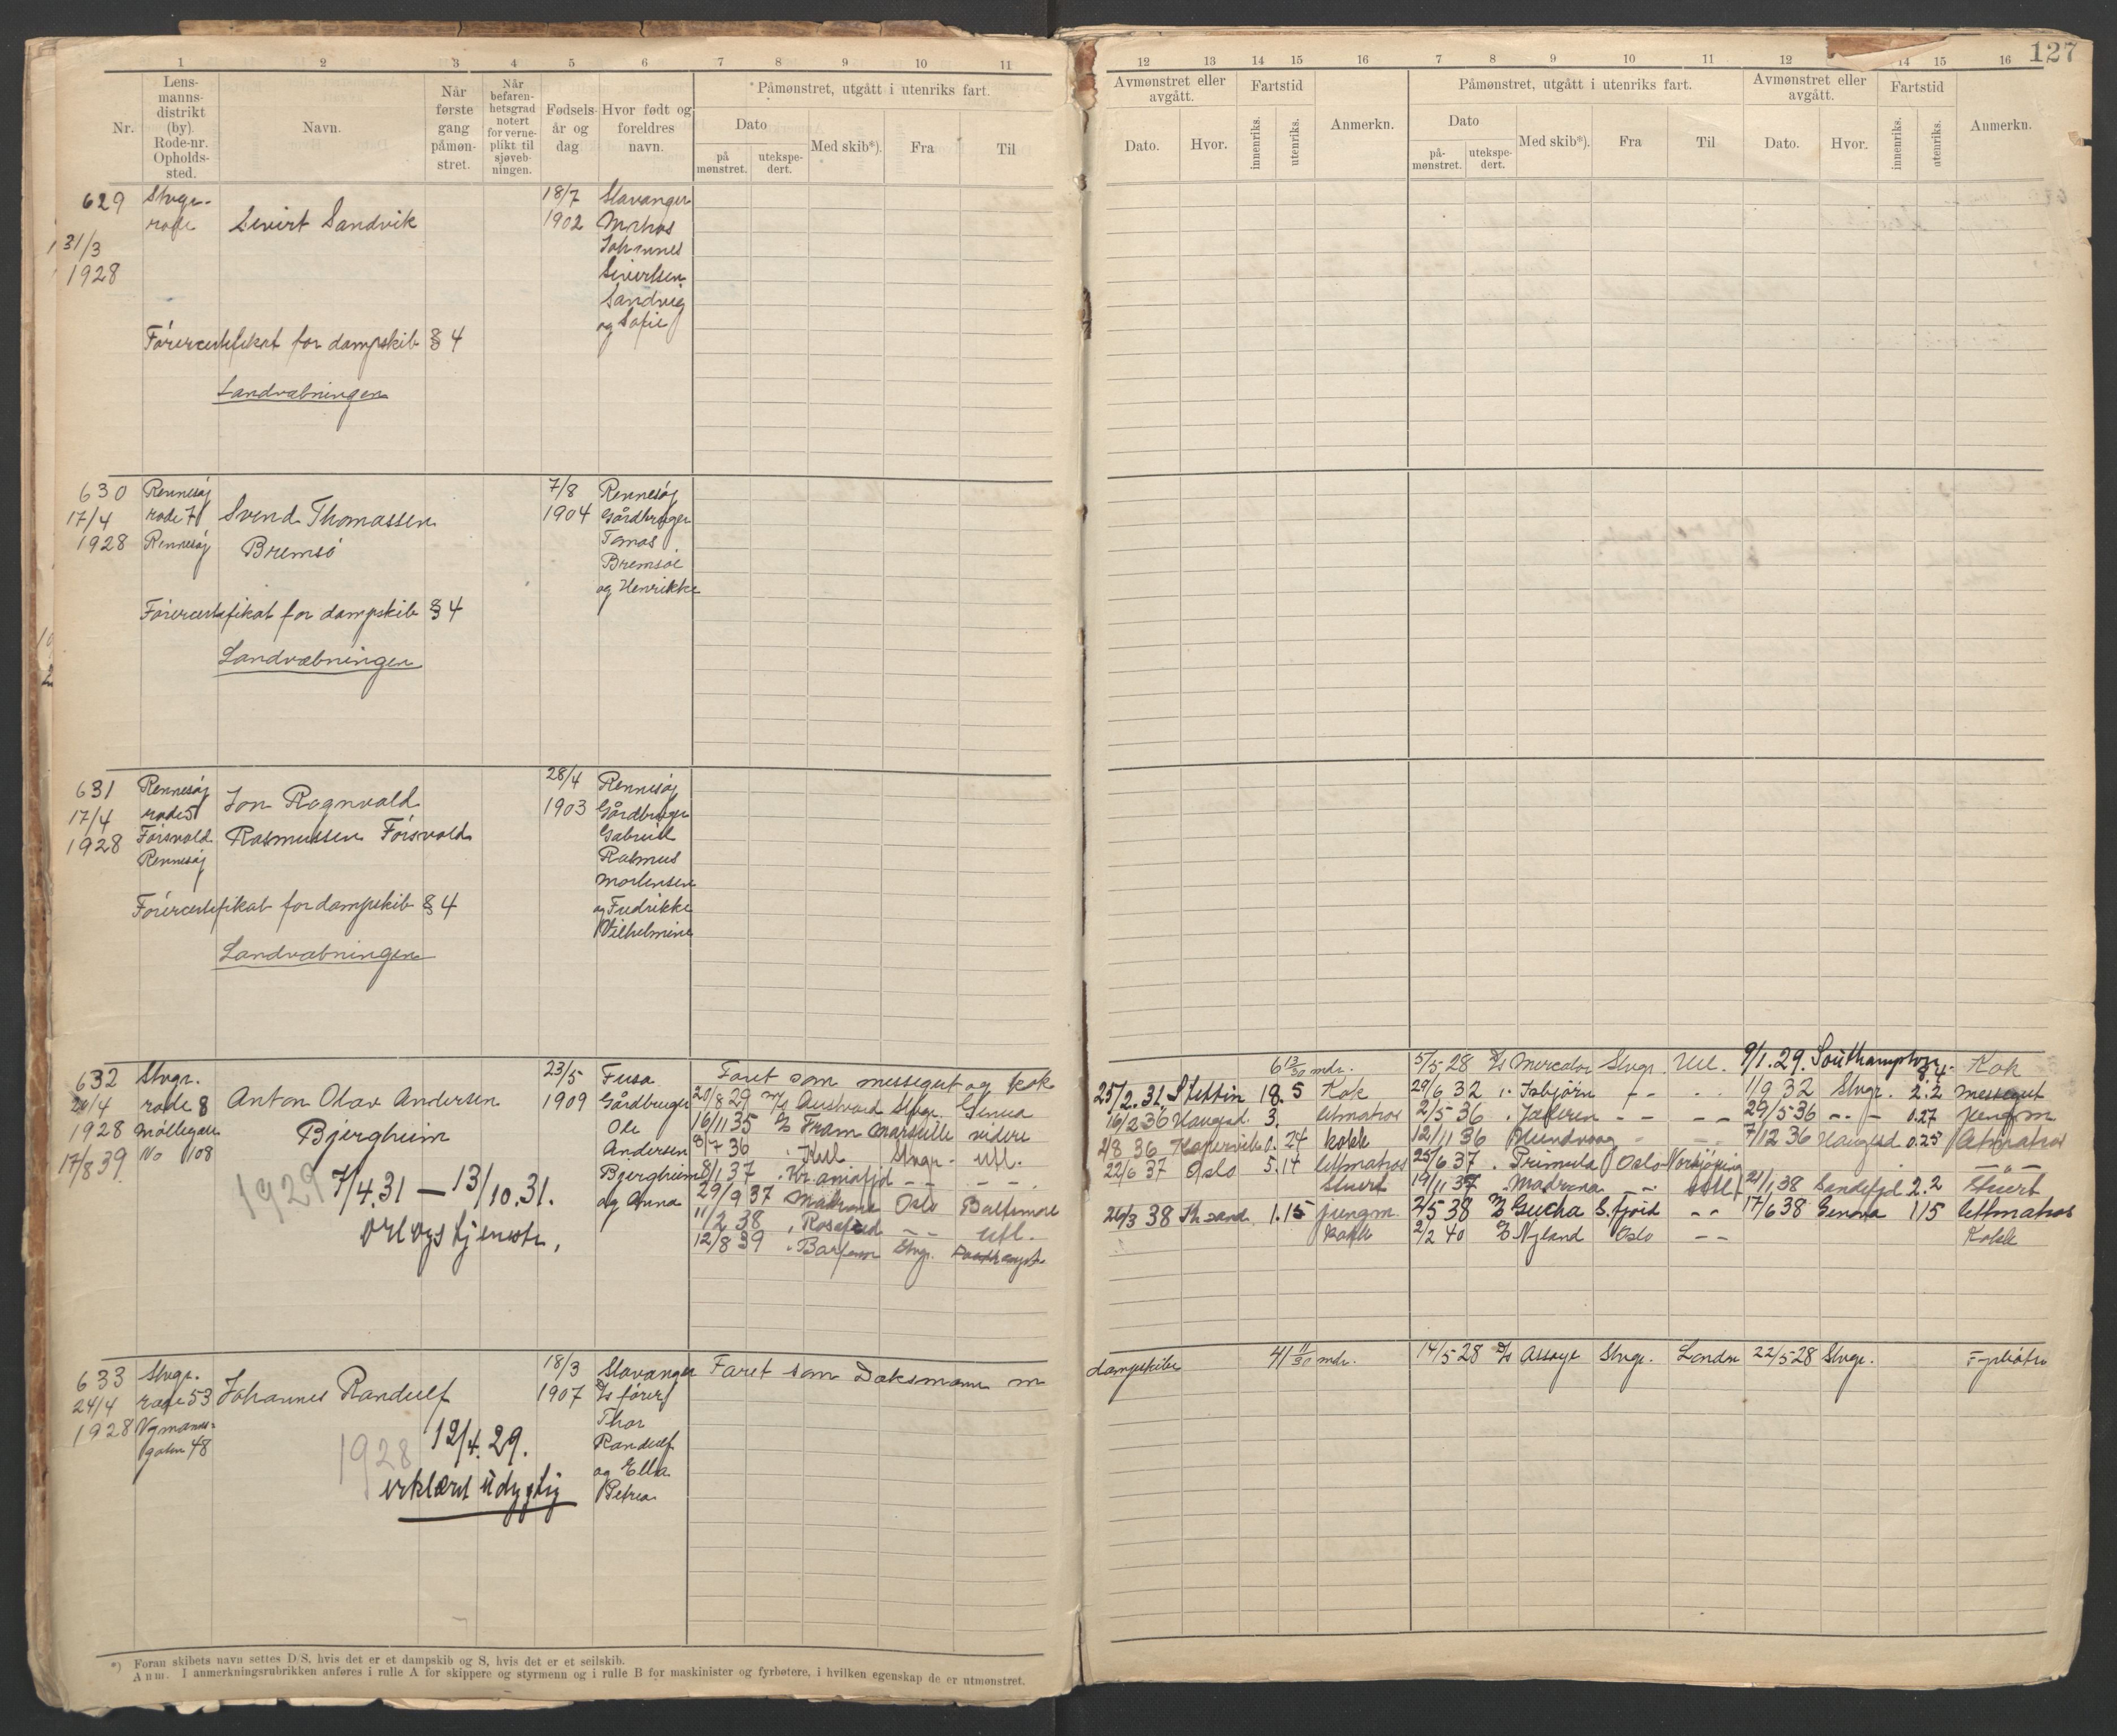 127
1 2 3 4 5 6 7 8 9 10 11
Nr.
Lens-
manns-
distrikt
(by).
Rode-nr.
Opholds-
sted.
Navn.
Når
første
gang
påmøn-
stret.
Når
befaren-
hetsgrad
notert
for verne-
plikt til
sjøveb-
ningen.
Fødsels-
år og
dag
Hvor født og
foreldres
navn.
Påmønstret, utgått i utenriks fart.
Dato
på
mønstret.
utekspe-
dert.
Med skib*).
Fra
Til
12 13 14 15 16 7 8 9 10 11 12 14 15 16
Avmønstret eller
avgått.
Dato.
Hvor.
Fartstid
innenriks.
utenriks.
Anmerkn.
Påmønstret, utgått i utenriks fart.
Dato
på-
mønstret.
utekspe-
dert.
Med skib*).
Fra
Til
Avmønstret eller
avgått.
Dato.
Hvor.
Fartstid
innenriks.
utenriks.
Anmerkn.
629
31/3
1928
Stvgr.
rode
Sivert Sandvik
18/7
1902
Stavanger
Matros
Johannes
Sivertsen
Sandvig
og Sofie
Førercertifikat for dampskib § 4
Landvæbningen
630
17/4
1928
Rennesøy
rode 7
Rennesøy
Svend Thomassen
Bremsö
7/8
1904
Rennesøy
Gårdbruger
Tomas
Bremsöe
og Henrikke
Førercertifikat for dampskib § 4
Landvæbningen
631
17/4
1928
Rennesøy
rode 5
Førsvold
Rennesøy
Jon Ragnvald
Rasmussen Førsvold
28/4
1903
Rennesøy
Gårdbruger
Gabriel
Rasmus
Mortensen
og Fredrikke
Vilhelmine
Førercertifikat for dampskib § 4
Landvæbningen
632
1928
17/8 39.
Stvgr.
rode 8
Møllegate
No 108
Anton Olav Andersen
Bjergheim
1929 7/4.31 — 13/10.31.
orlogstjeneste.
23/5
1909
Fusa
Gårdbruger
Ole
Andersen
Bjergheim
og Anna
Faret som messegut og kok 6 13/30 mdr.
20/8 29 M/S Austvard Stvgr. Genua 25/2.31 Stettin 18.5 Kok
16/11 35 D/S Fram Marseille videre 16/2 36 Haugsd. 3. letmatros
8/7 36 Stvgr. utl. 2/8 36 Kopervik 0.24 kokk
8/1 37 Kr.aniafjd – – – – 22/6 37 Oslo 5.14 letmatros
29/9 37 Madrona Oslo Baltimore Stuert
11/2 38 – – utl. 26/3 38 Kr.sand 1.15 jungm.
12/8 39 Stvgr. kokk
5/5 28 D/S Mercator Stvgr. Utl. 9/1.29. Southampton 8.4. Kok
29/6 32 Isbjörn – – 1/9 32 Stvgr. 2.2 messegut
2/5 36 Jæderen – – – – 29/5 36 – – 0.27 jungm
12/11 36 Hundvaag 7/12 36 Haugsd. 0.25 Letmatros
25/6 37 Primula Oslo Norkjøping – „ –
19/11 37 Madrona – – utl. 21/1 38 Sandefjd 2.2 stuert
2/5 38 Gucha S.fjord – – 17/6 38 Genova 1.15 letmatros
2/2 40 Nyland Oslo – – Kokk
633
24/4
1928
Stvgr.
rode 53
gaten 48
Johannes Randulf
1928 12/4.29.
erklæret udygtig
18/3
1907
Stavanger
D/S fører
Thor
Randulf
og Ella
Petrea
Faret som Dæksmann m dampskibe 41 11/30 mdr.
14/5 28 D/S Assaye Stvgr. London 22/5 28 Stvgr. Fyrbøter
*) Foran skibets navn settes D/S, hvis det er et dampskib og S, hvis det er et seilskib.
Anm. I anmerkningsrubrikken anføres i rulle A for skippere og styrmenn og i rulle B for maskinister og fyrbøtere, i hvilken egenskap de er utmønstret.